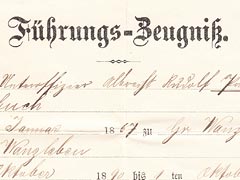 Führungs-Zeugniß.
Unteroffizier Albrecht Rudolf
Januar 1867 zu Gr. Wanz
Wanzleben
Oktober 1890 bis 1 ten Oktob